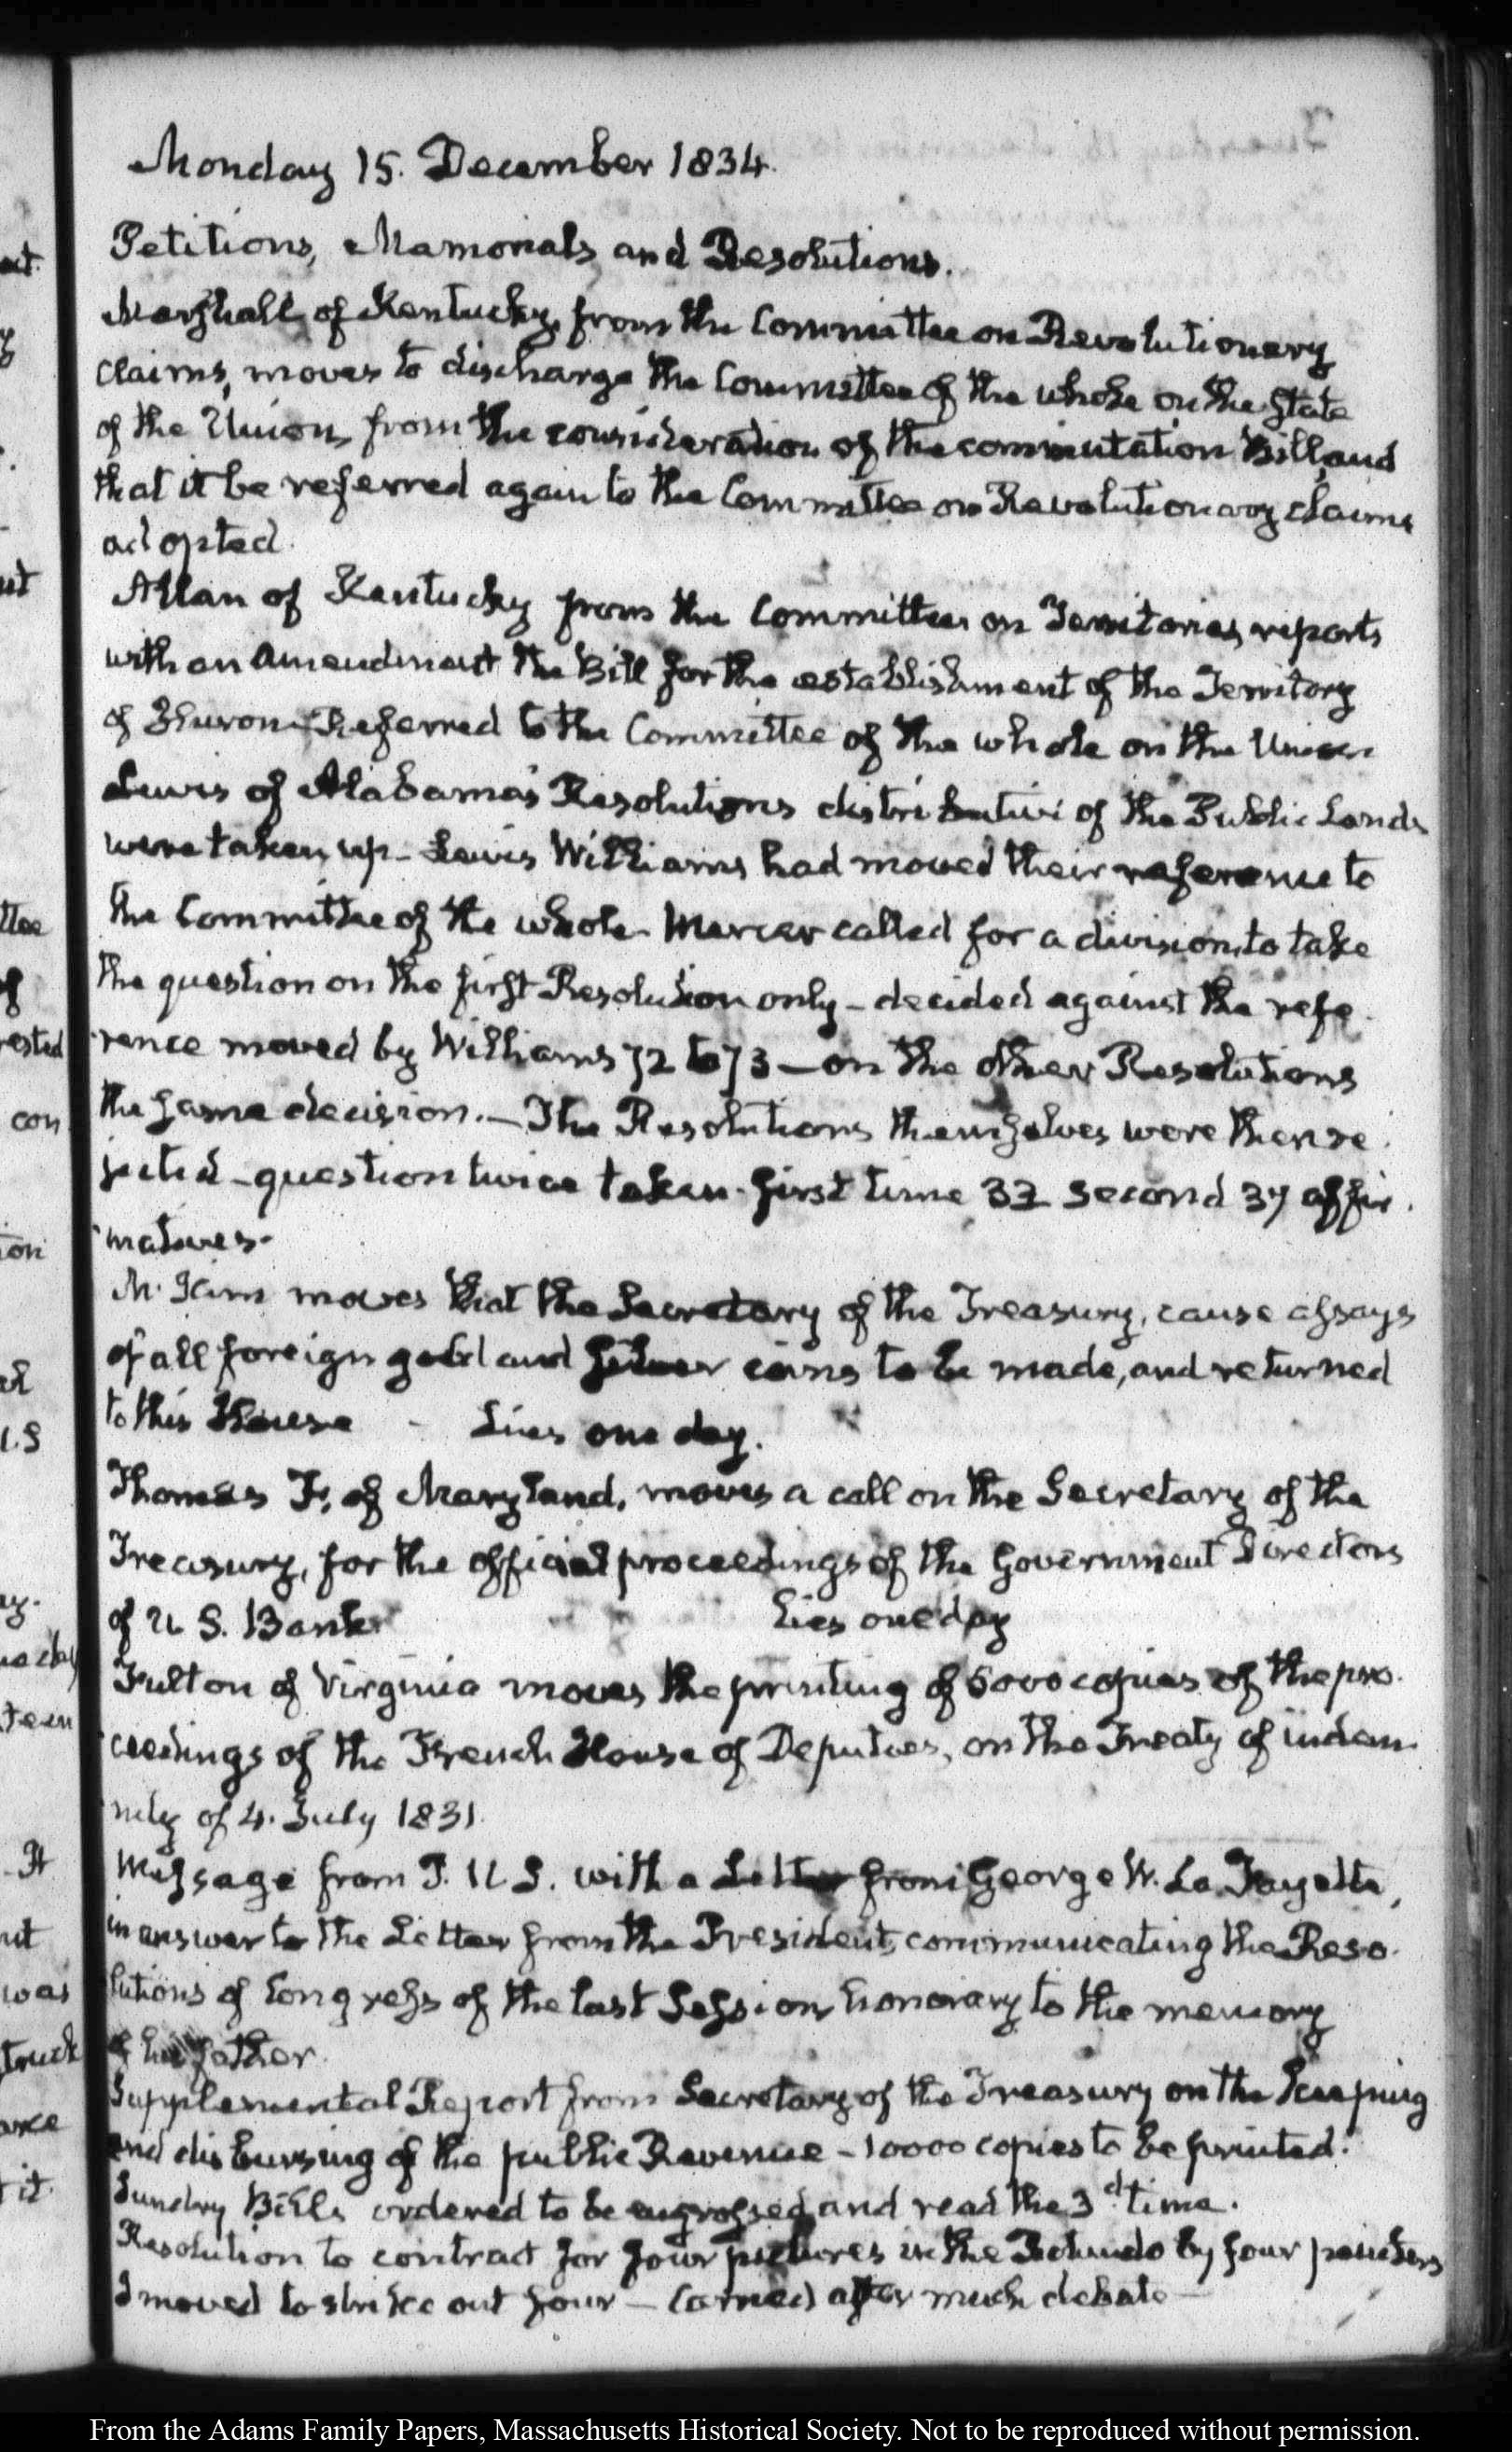 Monday 15. December 1834.
Petitions, Memorials and Resolutions.
Marshall of Kentucky, from the Committee on Revolutionary
claims, moves to discharge the Committee of the whole on the State
of the Union, from the consideration of the commutation Bill, and
that it be referred again to the Committee on Revolutionary claims
adopted.
Allan of Kentucky from the Committee on Territories, reports
with an Amendment the Bill for the establishment of the Territory
of Huron—Referred to the Committee of the whole on the Union
Lewis of Alabama's Resolutions distributive of the Public Lands
were taken up—Lewis Williams had moved their reference to
the Committee of the whole—Mercer called for a division, to take
the question on the first Resolution only—decided against the refe-
rence moved by Williams 72 to 73—on the other Resolutions
the same decision.—The Resolutions themselves were then re-
jected—question twice taken—first time 32 second 37 affir-
matives.
McKim moves that the Secretary of the Treasury, cause assays
of all foreign gold and silver coins to be made, and returned
to this House - Lies one day.
Thomas F. of Maryland, moves a call on the Secretary of the
Treasury, for the official proceedings of the Government Directors
of U S. Bank Lies one day
Fulton of Virginia moves the printing of 5000 copies of the pro-
ceedings of the French House of Deputies, on the Treaty of indem-
nity of 4. July 1831.
Message from P. U S. with a Letter from George W. La Fayette,
in answer to the Letter from the President, communicating the Reso-
lutions of Congress of the last Session honorary to the memory
of his father.
Supplemental Report from Secretary of the Treasury on the keeping
and disbursing of the public Revenue—10000 copies to be printed.
Sundry Bills ordered to be engrossed and read the 3d. time.
Resolution to contract for four pictures in the Rotundo by four painters
I moved to strike out four—Carried after much debate—
ttee
rested
con
ion
U.S
It
was
truck
it.
From the Adams Family Papers, Massachusetts Historical Society. Not to be reproduced without permission.